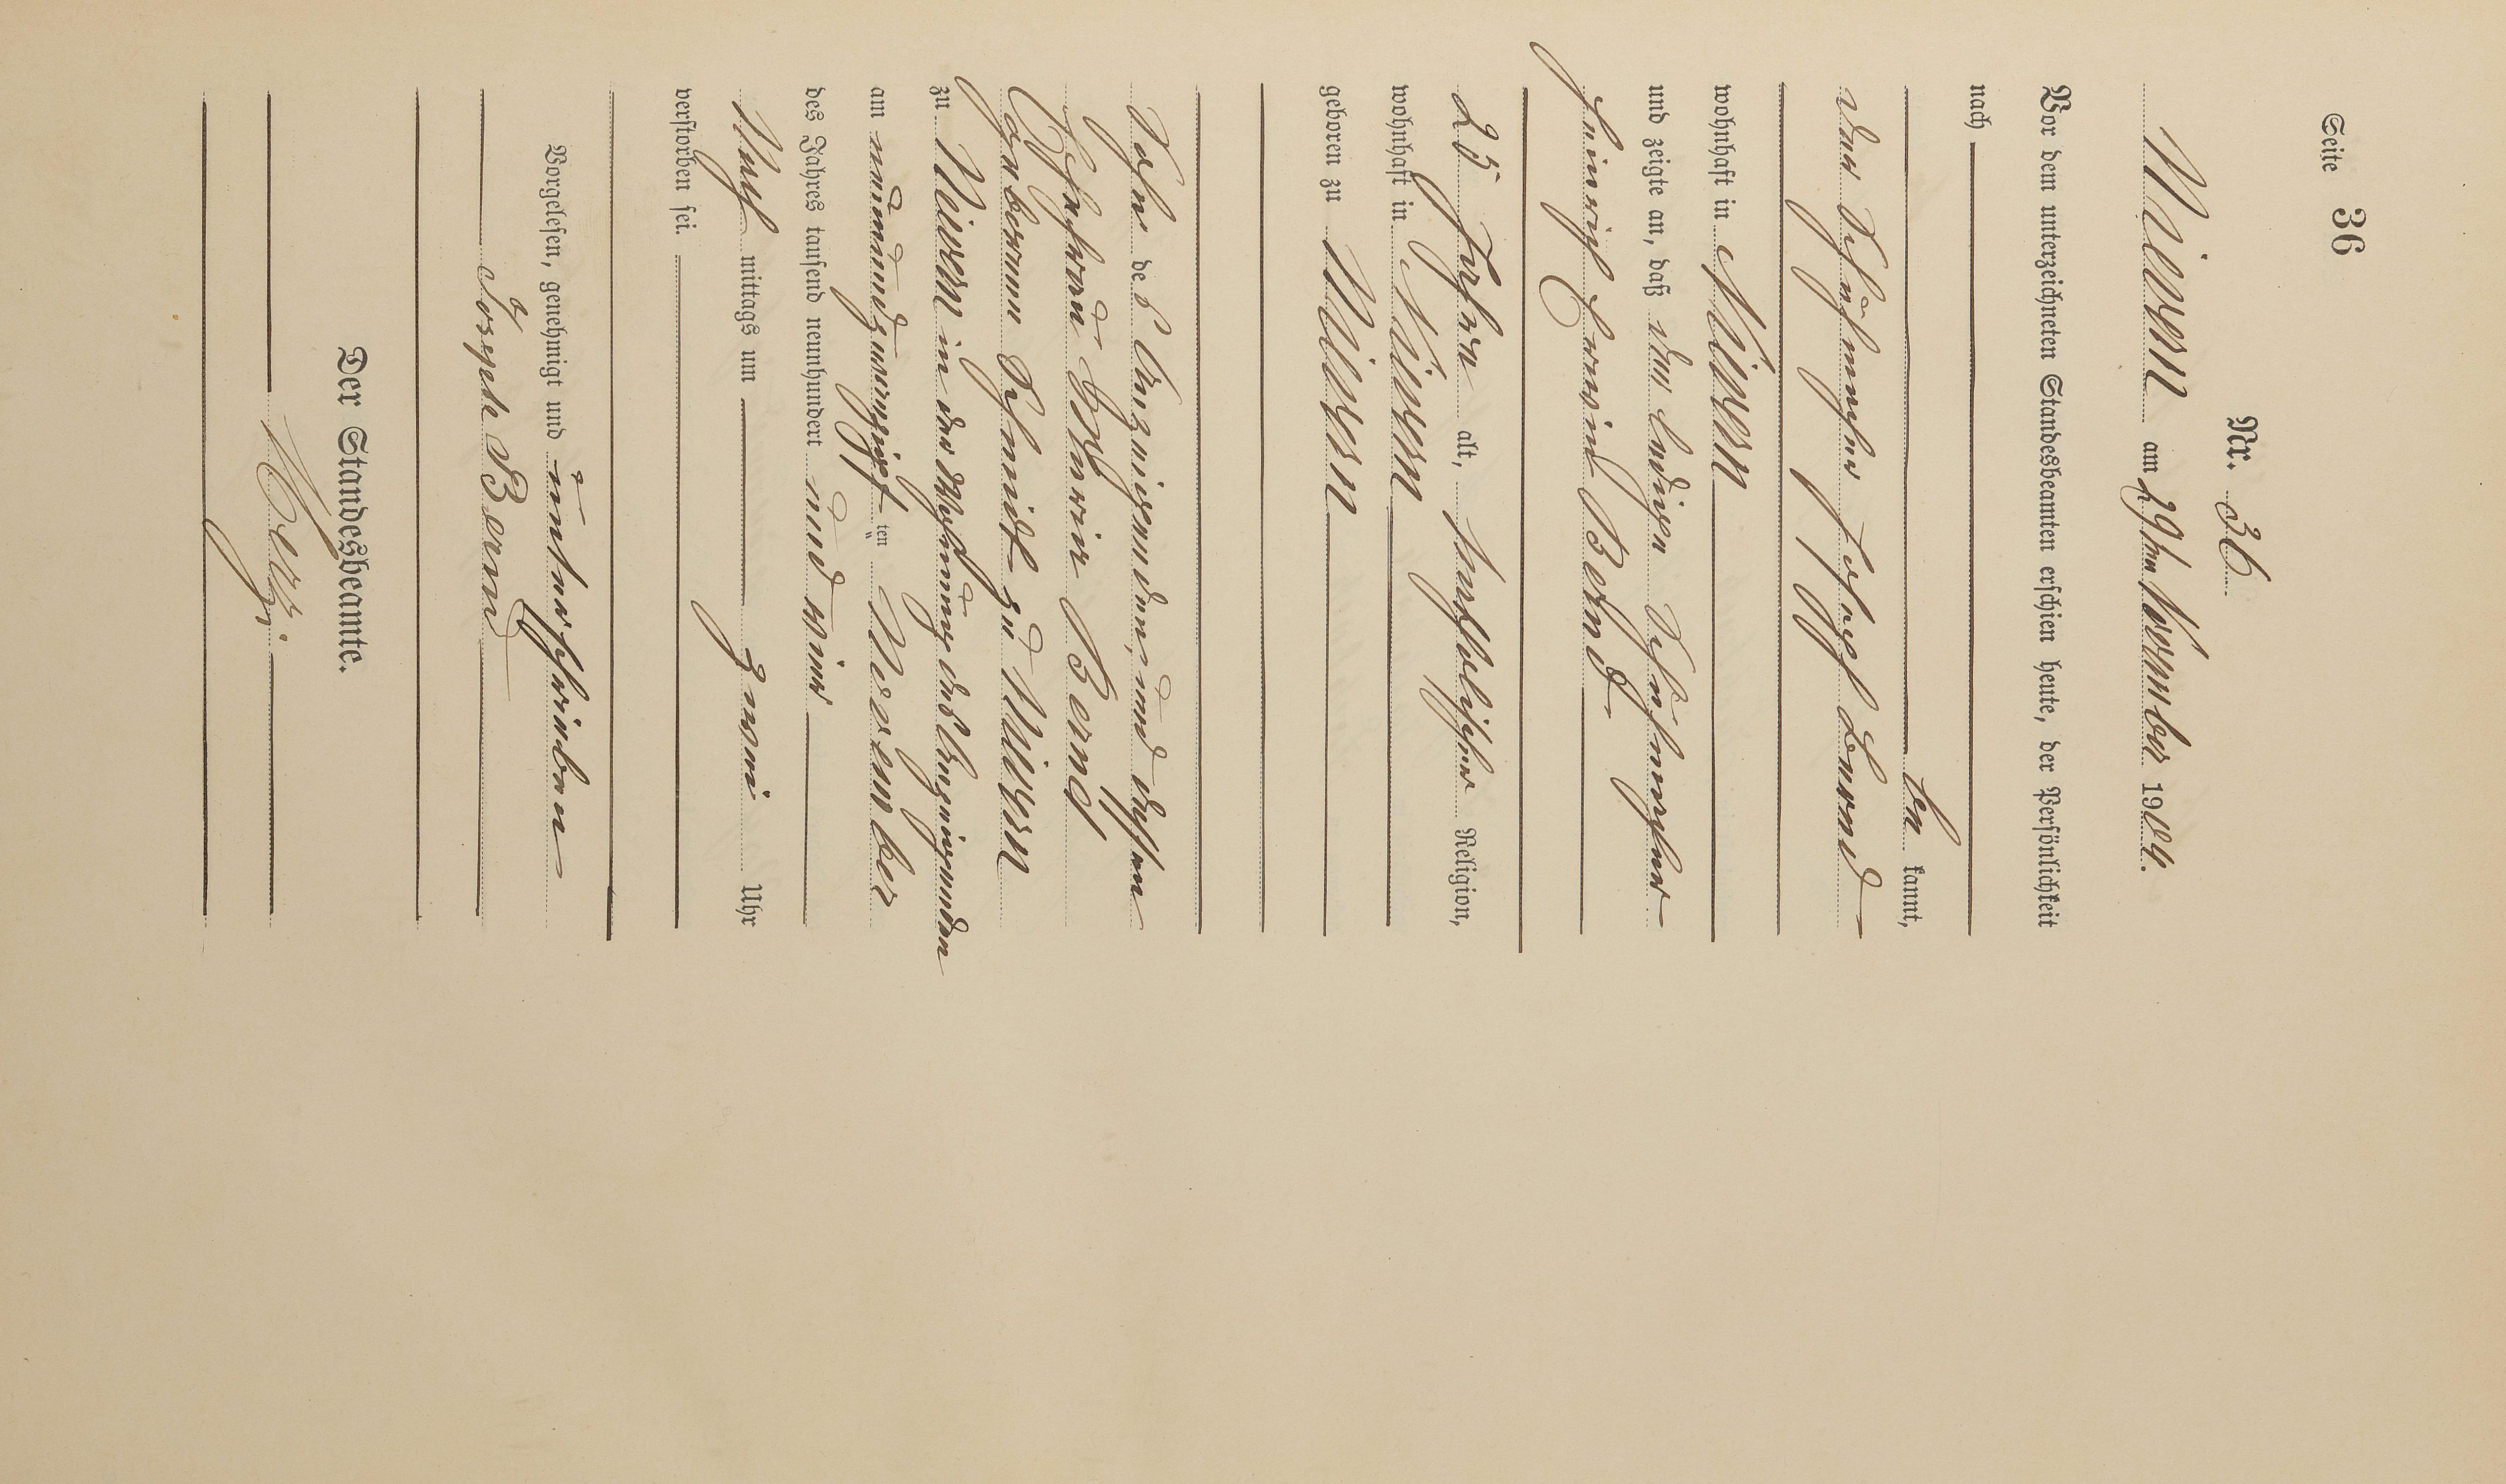 Seite 36
Nr. 36
Nievern am 29ten November 1904.
Vor dem unterzeichneten Standesbeamten erschien heute, der Persönlichkeit
nach
be kannt,
der Schuhmacher Joseph Bernd
wohnhaft in Nievern
und zeigte an, daß der ledige Schuhmacher
Heinrich Bernd
25 Jahre alt, katholischer Religion,
wohnhaft in Nievern
geboren zu Nievern
Sohn des Anzeigenden, und dessen
Ehefrau Bernd
geborene Schmidt zu Nievern
zu Nievern in der Wohnung des Anzeigenden
am neunundzwanzigsten November
des Jahres tausend neunhundert und vier
Nach mittags um zwei Uhr
verstorben sei.
Vorgelesen, genehmigt und unterschrieben
Joseph Bernd
Der Standesbeamte.